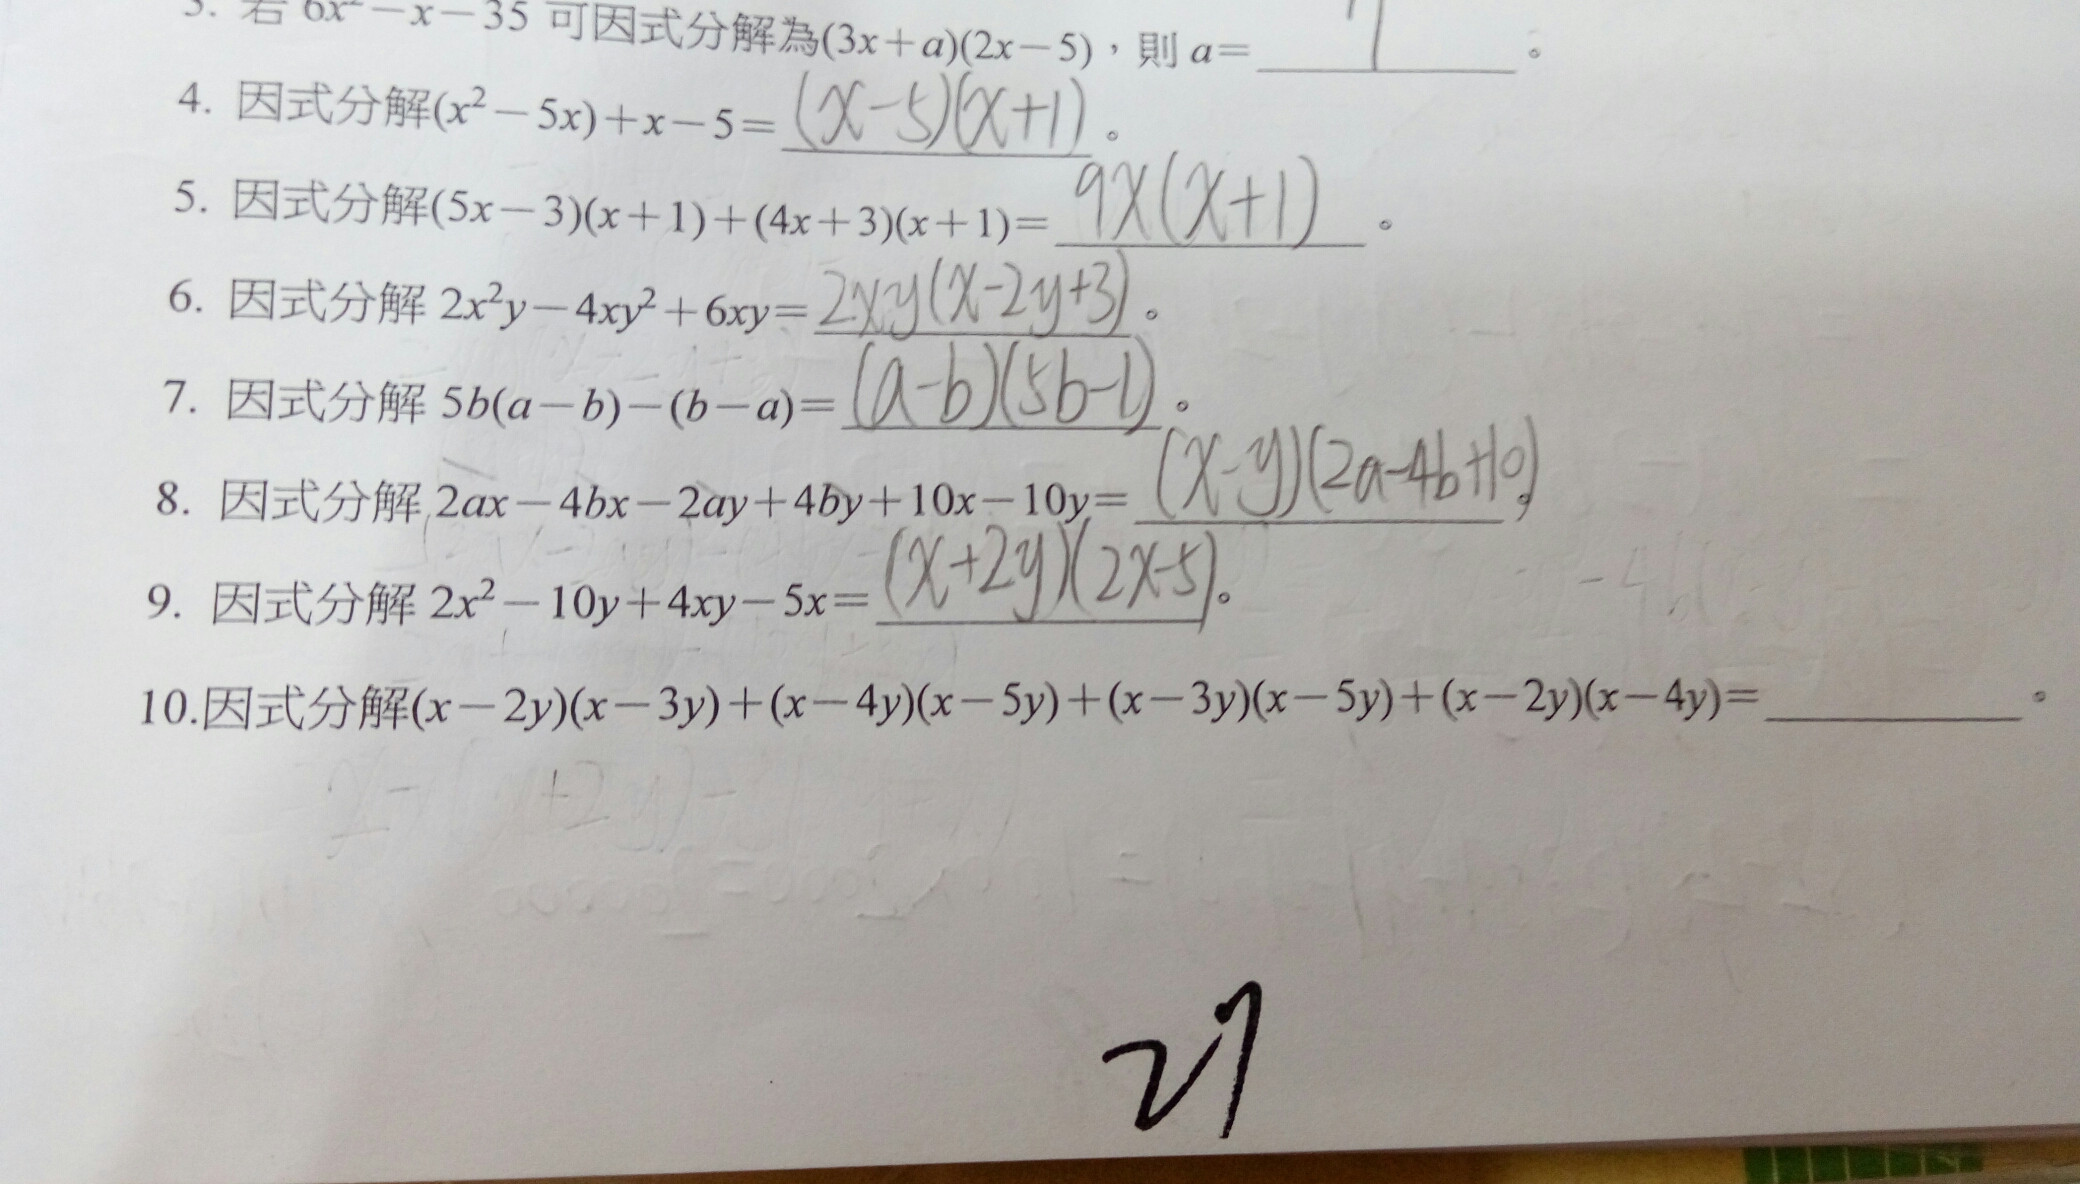 3. 若 6x²－x－35 可因式分解為(3x＋a)(2x－5)，則 a＝ 7 。
4. 因式分解(x²－5x)＋x－5＝ (x-5)(x+1) 。
5. 因式分解(5x－3)(x＋1)＋(4x＋3)(x＋1)＝ 9x(x+1) 。
6. 因式分解 2x²y－4xy²＋6xy＝ 2xy(x-2y+3) 。
7. 因式分解 5b(a－b)－(b－a)＝ (a-b)(5b-1) 。
8. 因式分解 2ax－4bx－2ay＋4by＋10x－10y＝ (x-y)(2a-4b+10) 。
9. 因式分解 2x²－10y＋4xy－5x＝ (x+2y)(2x-5) 。
10.因式分解(x－2y)(x－3y)＋(x－4y)(x－5y)＋(x－3y)(x－5y)＋(x－2y)(x－4y)＝ 。